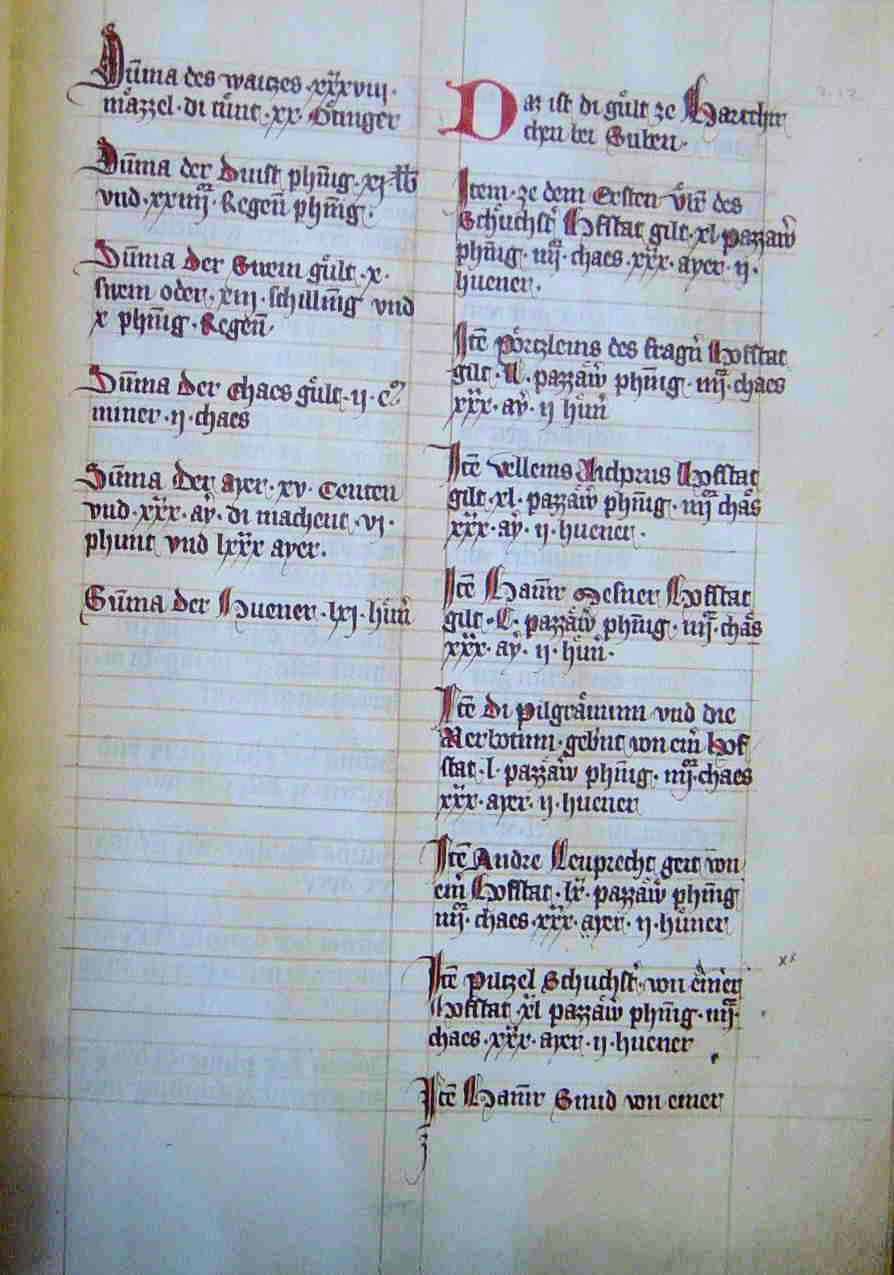 Sum̄a des waitzes ·xxxviii·
mäzzel· di tůnt ·xx· Ötinger
Sum̄a der Dinst phēnīg ·xi· lb
vnd ·xxiiii· Regen̄ phēnīg·
Sum̄a der Swein gůlt ·x·
swein oder ·xiii· schilling vnd
x phēnīg· Regen̄·
Sum̄a der Chaes gůlt ·ii· c
minner ·ii· chaes
Sum̄a der ayer ·xv· Centen
vnd ·xxx· aẏ· di machent ·vi·
phunt vnd lxxx ayer·
Sum̄a der Huener ·lxi· hůn̄
Daz ist di gůlt ze Harechir
chen bei Guben·
Item· ze dem Ersten Vlr̄ des
Schůchst̄ Hofstat gilt ·xl· pazzaw̄
phēnīg· iiii· chaes ·xxx· ayer ·ii·
huener·
Itē Pörtzleins des fragn̄ Hofstat
gilt ·l· pazzaw̄ phēnīg· iiii· chaes
xxx· aẏ· ii hůn̄
Itē vlleins Hofstat
gilt ·xl· pazzaw̄ phēnīg· iiii chäs
xxx· aẏ· ii· huener·
Itē Hainr̄ Mesner Hofstat
gilt ·l· pazzaw̄ phēnīg· iiii· chäs
xxx· aẏ· ii· hůn̄·
Itē di Pilgräminn vnd die
gebnt von ein̄ hof
stat ·l· pazzaw̄ phēnīg· iiii· chaes
xxx· ayer· ii· huener
Itē Andre Leuprecht geit von
ein̄ Hofstat ·lx· pazzaw̄ phēnīg
iiii· chaes ·xxx· ayer· ii· hůner
Itē Putzel Schuchst̄· von einer
Hofstat xl pazzaw̄ phēnīg· iiii·
chaes ·xxx· ayer· ii· huener
Itē Hainr̄ Smid von einer